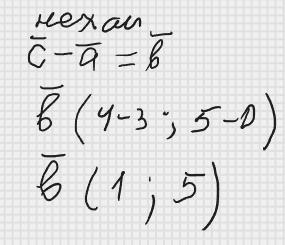 нехай
c̅ - a̅ = b̅
b̅ (4-3 ; 5-0)
b̅ (1 ; 5)